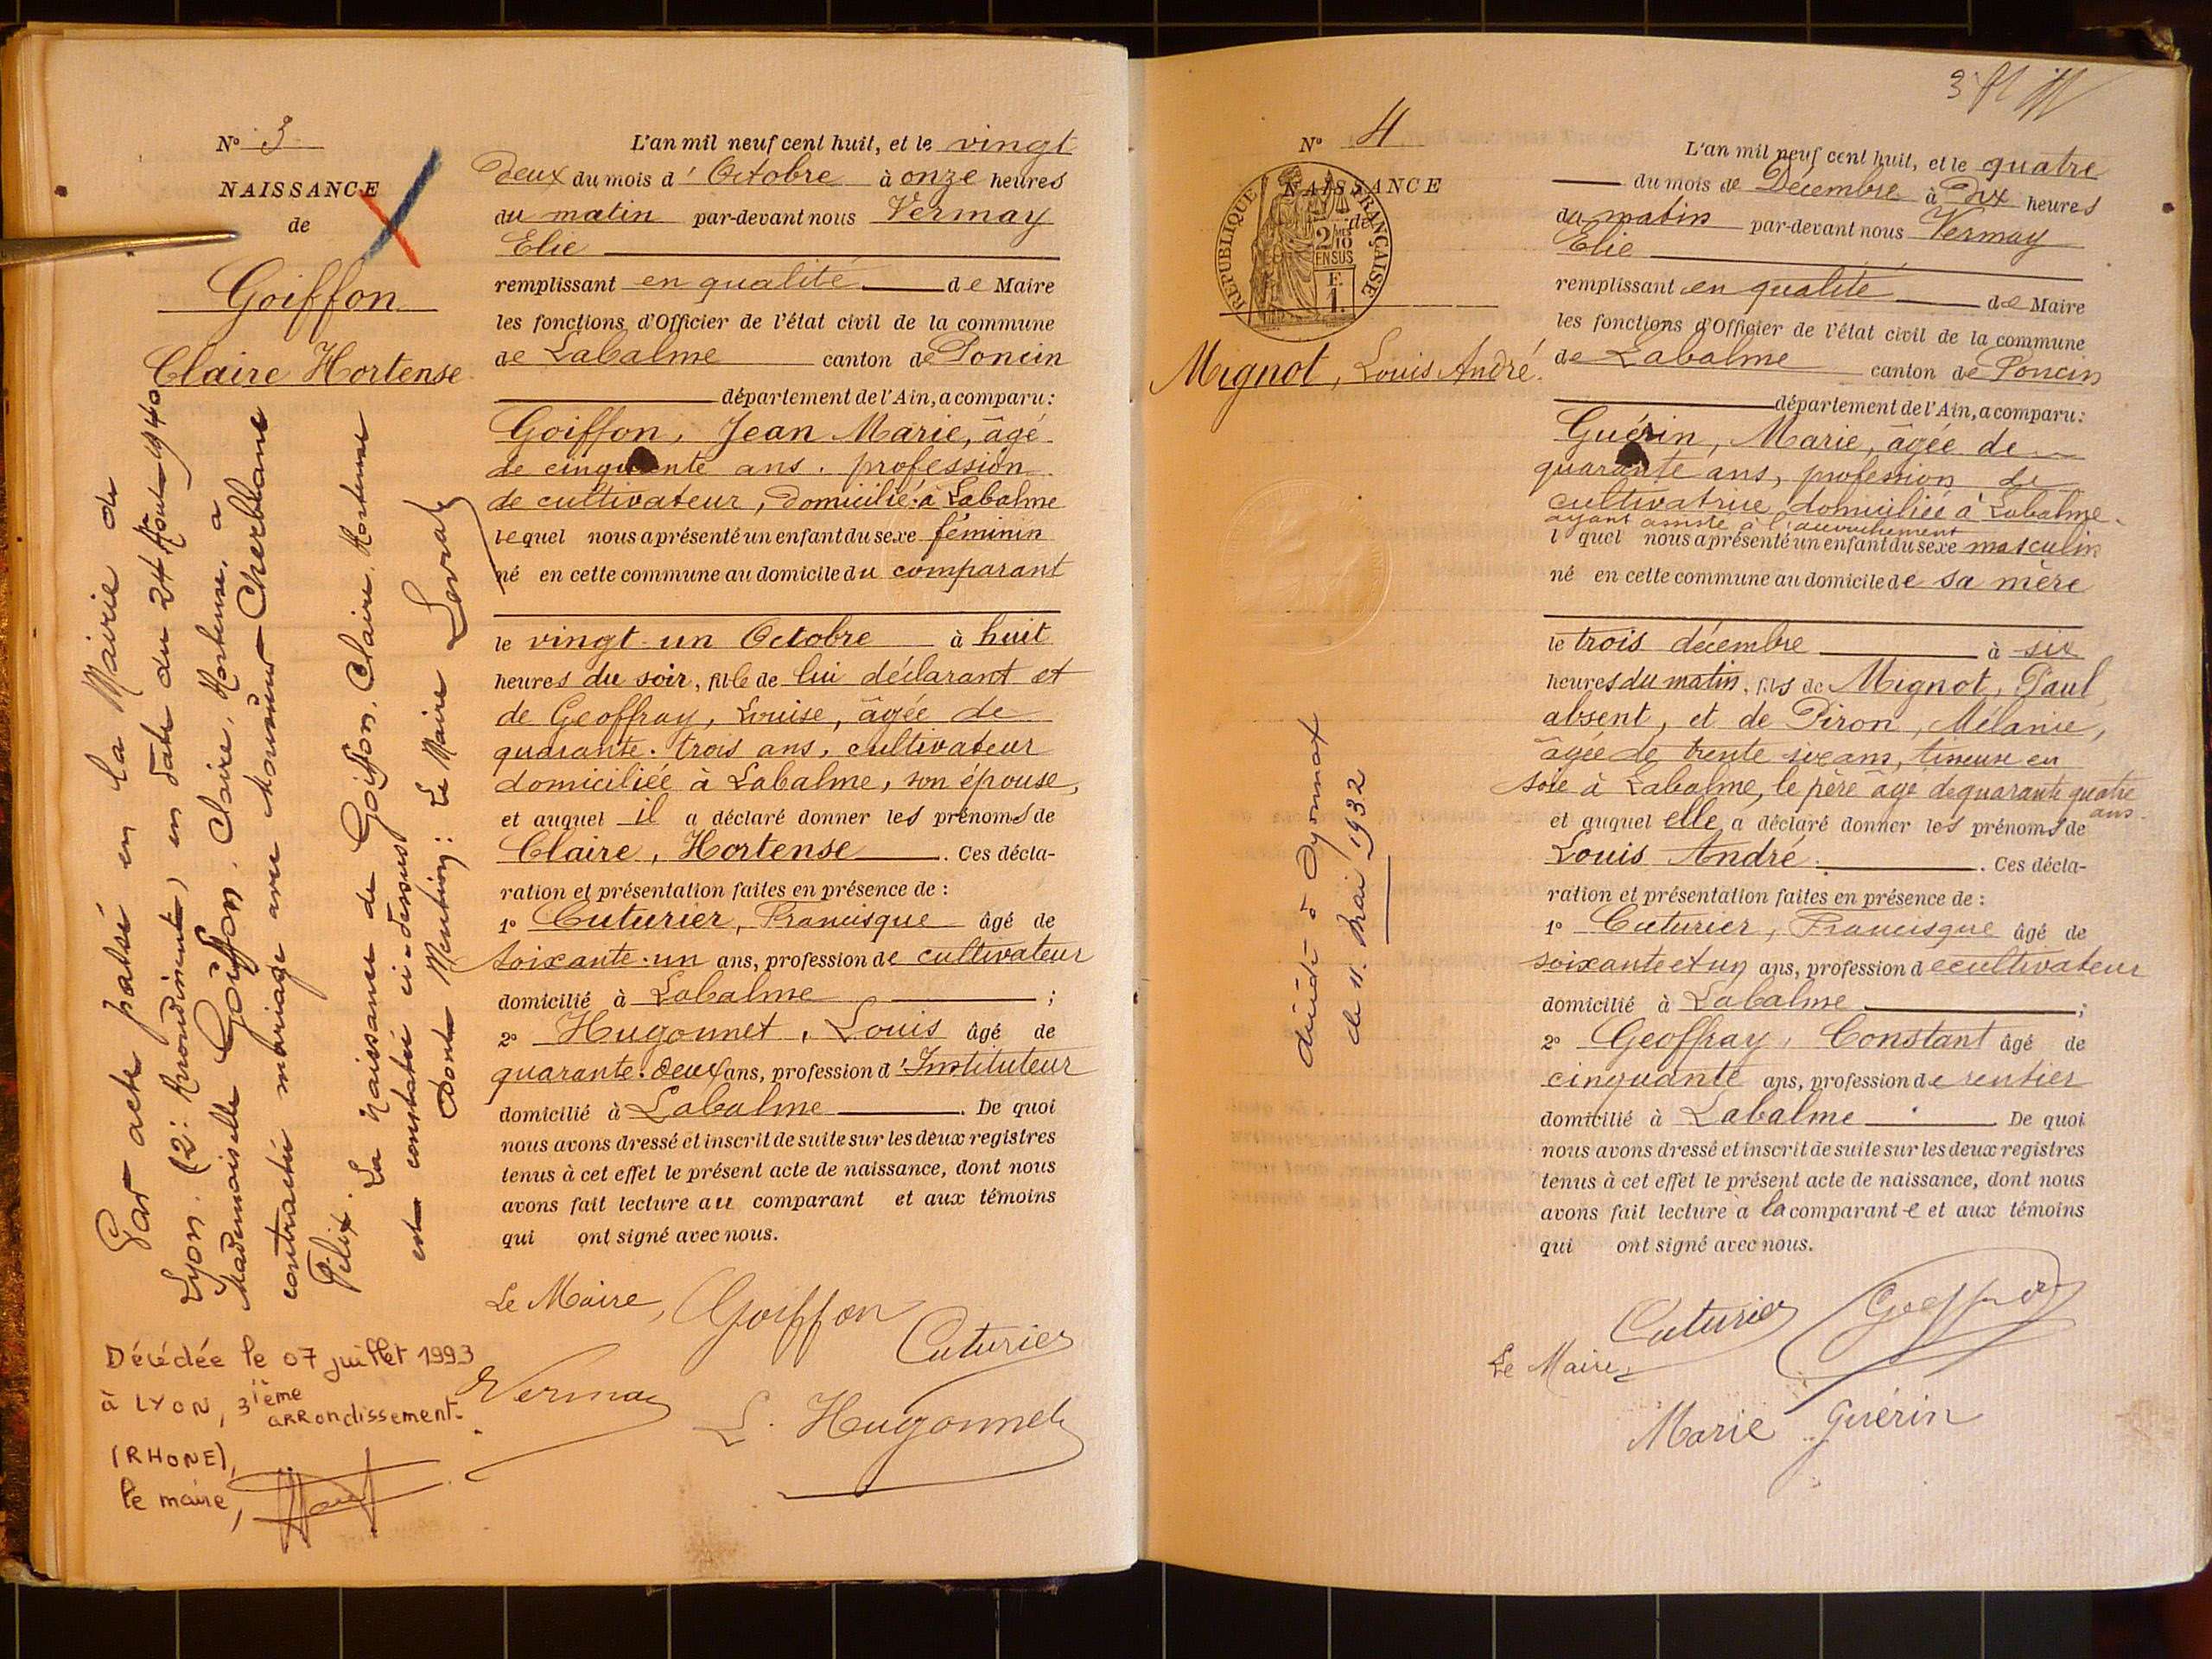 N° 3
NAISSANCE
de
Goiffon
Claire Hortense
L'an mil neuf cent huit, et le vingt
deux du mois d'Octobre à onze heures
du matin par-devant nous Vermay
Elie
remplissant en qualité de Maire
les fonctions d'Officier de l'état civil de la commune
de Labalme canton de Poncin
département de l'Ain, a comparu :
Goiffon, Jean Marie, âgé
de cinquante ans. profession
de cultivateur, domicilié à Labalme
lequel nous a présenté un enfant du sexe féminin
né en cette commune au domicile du comparant
le vingt-un Octobre à huit
heures du soir, fille de lui déclarant et
de Geoffray, Louise, âgée de
quarante-trois ans, cultivateur
domiciliée à Labalme, son épouse,
et auquel il a déclaré donner les prénoms de
Claire, Hortense. Ces décla-
ration et présentation faites en présence de :
1° Cuturier, Francisque âgé de
soixante-un ans, profession de cultivateur
domicilié à Labalme ;
2° Hugonnet, Louis âgé de
quarante-deux ans, profession d'Instituteur
domicilié à Labalme. De quoi
nous avons dressé et inscrit de suite sur les deux registres
tenus à cet effet le présent acte de naissance, dont nous
avons fait lecture au comparant et aux témoins
qui ont signé avec nous.
Le Maire, Goiffon
Cuturier
Vermay
L. Hugonnet
Par acte passé en la Mairie de
Lyon. (2e Arrondissement) en date du 24 Août 1940
Mademoiselle Goiffon, Claire, Hortense, a
contracté mariage avec Monsieur Cherblanc
Félix. La naissance de Goiffon, Claire, Hortense
est constatée ci-dessus
Dont Mention : Le Maire
Décédée le 07 juillet 1993
à LYON, 3ième
ARRondissement.
(RHONE),
le maire,
3
N° 4
NAISSANCE
de
REPUBLIQUE FRANÇAISE
2/10
EN SUS
E.
1.
Mignot, Louis André.
L'an mil neuf cent huit, et le quatre
du mois de Décembre à Dix heures
du matin par-devant nous Vermay
Elie
remplissant en qualité de Maire
les fonctions d'Officier de l'état civil de la commune
de Labalme canton de Poncin
département de l'Ain, a comparu :
Guérin, Marie, âgée de
quarante ans, profession de
cultivatrice, domiciliée à Labalme
ayant assisté à l'accouchement
l quel nous a présenté un enfant du sexe masculin
né en cette commune au domicile de sa mère
le trois décembre à six
heures du matin, fils de Mignot, Paul
absent, et de Piron, Mélanie,
âgée de trente six ans, tisseuse en
soie à Labalme, le père âgé de quarante quatre
ans.
et auquel elle a déclaré donner les prénoms de
Louis André. Ces décla-
ration et présentation faites en présence de :
1° Cuturier, Francisque âgé de
soixante et un ans, profession de cultivateur
domicilié à Labalme ;
2° Geoffray, Constant âgé de
cinquante ans, profession de rentier
domicilié à Labalme. De quoi
nous avons dressé et inscrit de suite sur les deux registres
tenus à cet effet le présent acte de naissance, dont nous
avons fait lecture à la comparante et aux témoins
qui ont signé avec nous.
Cuturier Geoffray
Le Maire,
Marie Guérin
décédé à Oyonnax
le 11. Mai 1932